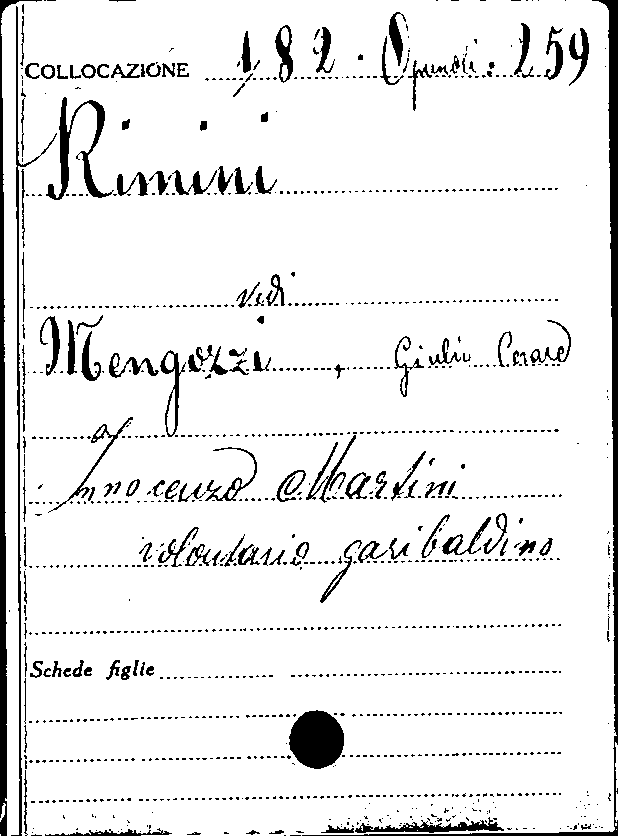 COLLOCAZIONE 182 · Opuscoli: 259
Rimini
vedi
Mengozzi, Giulio Cesare
a
Innocenzo Martini
volontario garibaldino
Schede figlie